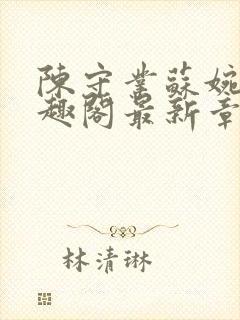 陳守業蘇婉
趣閣最新章
林清琳